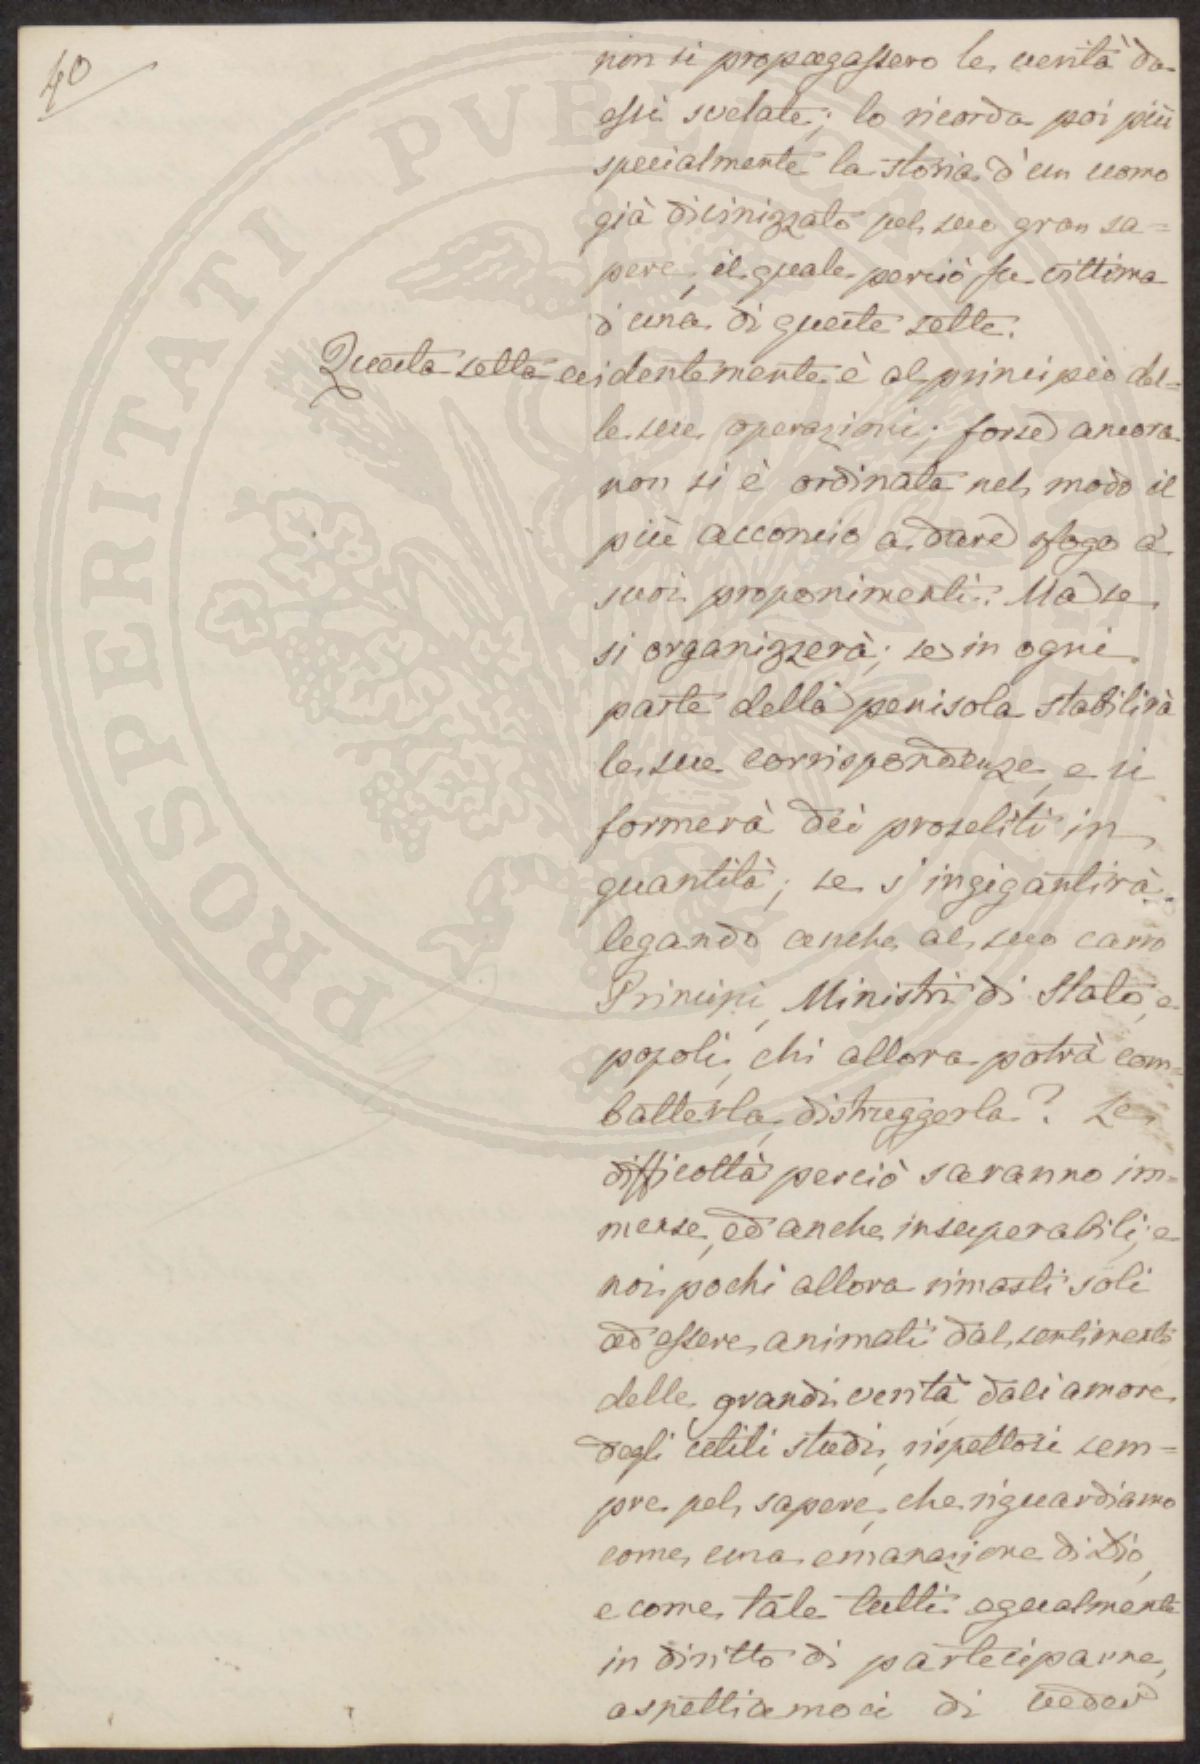 40
non si propagassero le verità da
essi svelate; lo ricorda poi più
specialmente la storia d'un uomo
già divinizzato pel suo gran sa=
pere, il quale perciò fu vittima
d'una di queste sette.
Questa setta evidentemente è al principio del=
le sue operazioni; forse ancora
non si è ordinata nel modo il
più acconcio a dare sfogo a'
suoi proponimenti. Ma se
si organizzerà; se in ogni
parte della penisola stabilirà
le sue corrispondenze, e si
formerà dei proseliti in
quantità; se s'ingigantirà
legando anche al suo carro
Principi, Ministri di Stato, e
popoli, chi allora potrà com=
batterla, distruggerla? Le
difficoltà perciò saranno im=
mense, ed anche insuperabili; e
noi pochi allora rimasti soli
ad essere animati dal sentimento
delle grandi verità dall'amore
degli utili studi, rispettosi sem=
pre pel sapere, che riguardiamo
come una emanazione di Dio,
e come tale tutti egualmente
in diritto di parteciparne,
aspettiamoci di veder
PROSPERITATI PVBLICAE